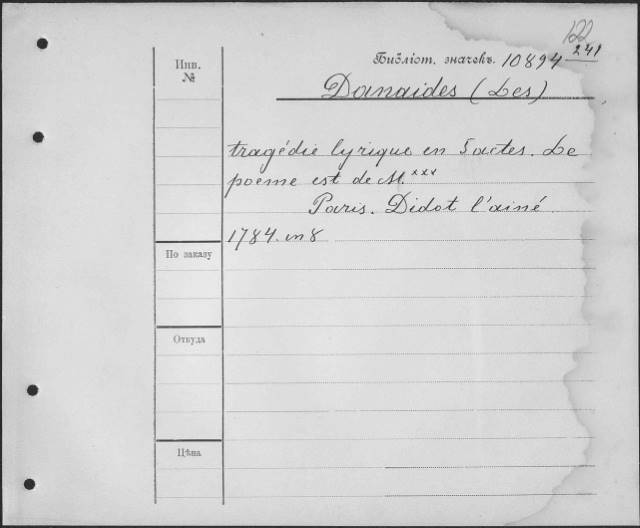 122
241
Инв. №
Библіот. значекъ. 10894
Danaides (Les)
tragédie lyrique en 5 actes. Le
poème est de M. xxx
Paris. Didot l'ainé.
1784. in 8
По заказу
Откуда
Цѣна